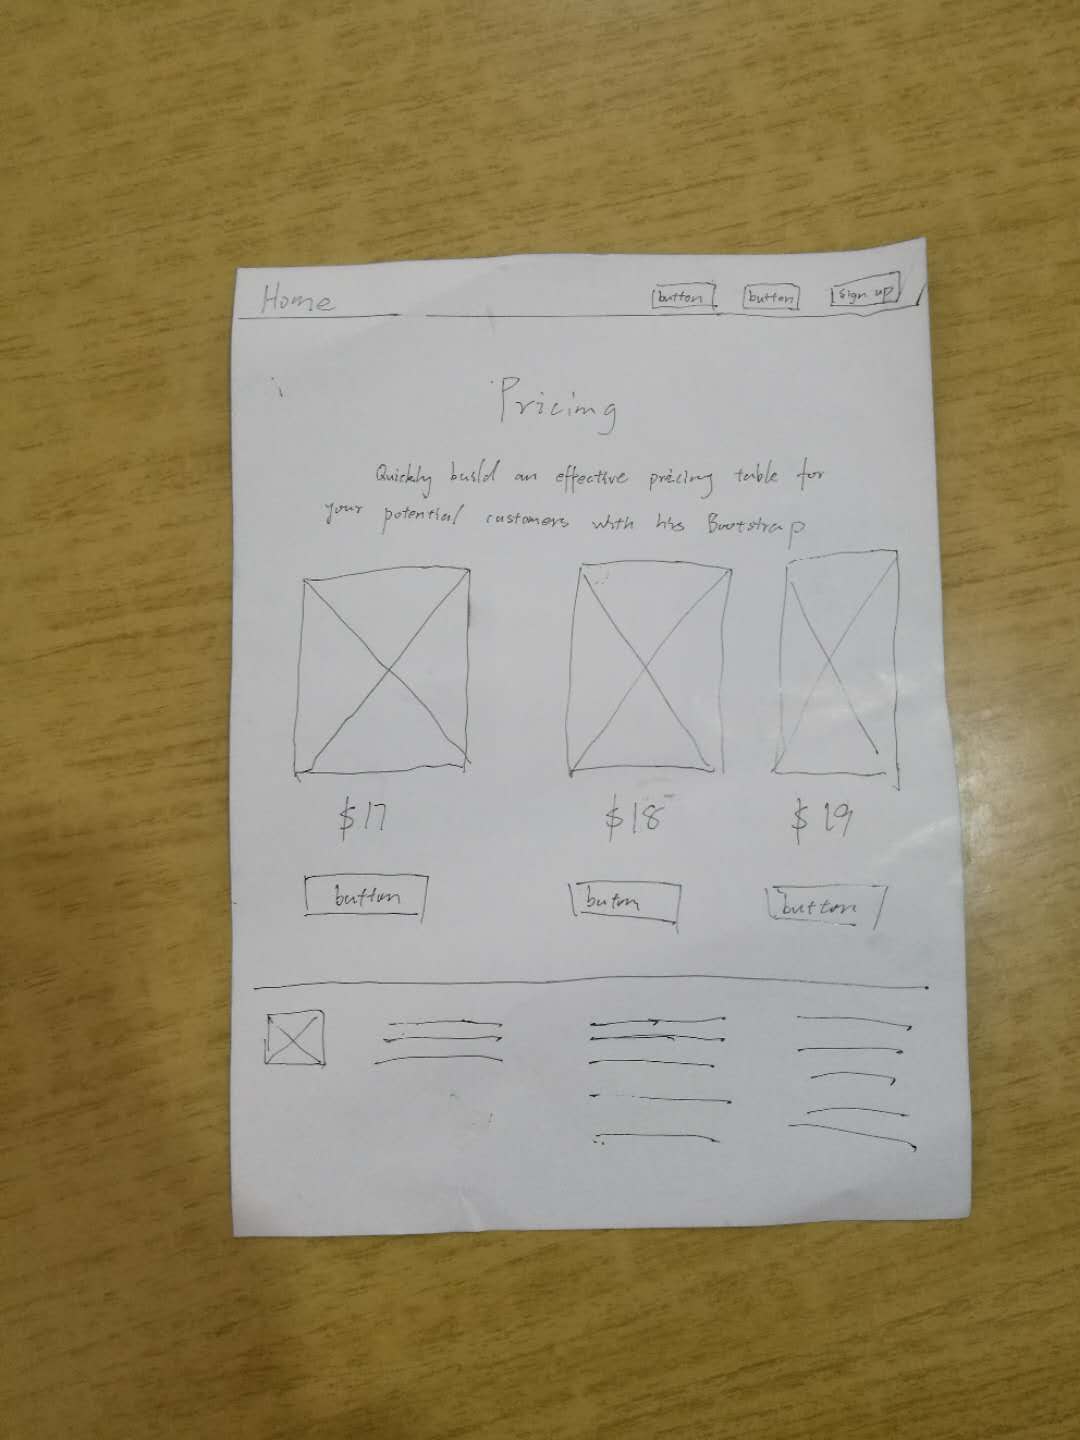 Home
button button sign up
Pricing
Quickly build an effective pricing table for
your potential customers with his Bootstrap
$17 $18 $19
button buton button